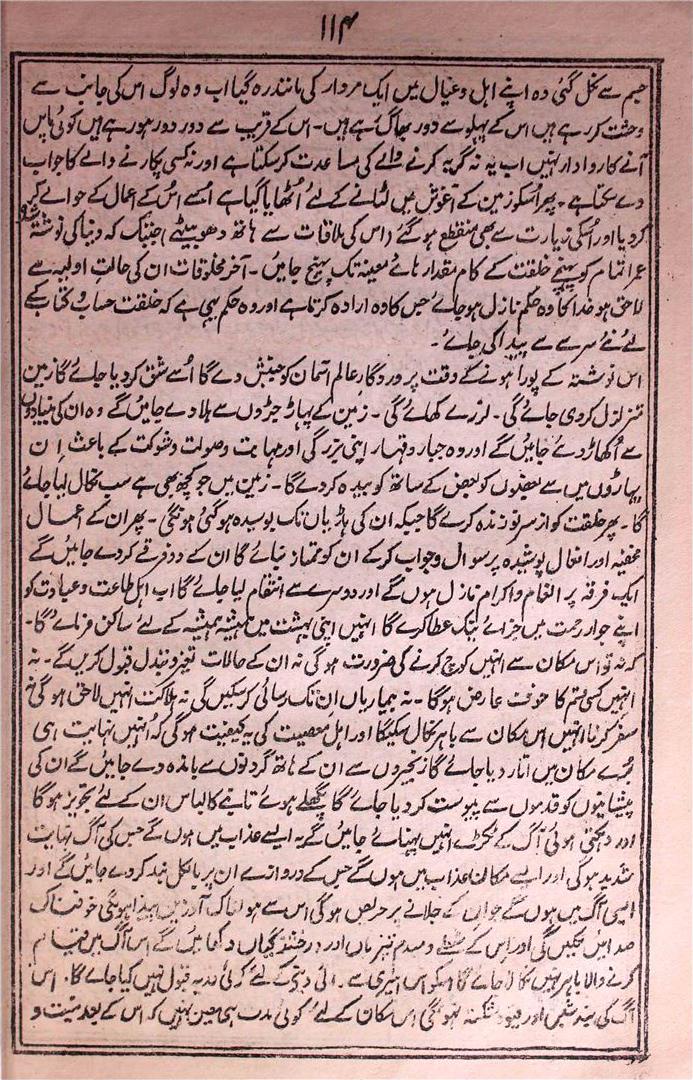 ۱۱۴
جسم سے نکل گئی وہ اپنے اہل و عیال میں ایک مردار کی مانند رہ گیا اب وہ لوگ اس کی جانب سے
وحشت کر رہے ہیں اس کے پہلو سے دور بھاگ رہے ہیں۔ اس کے قریب سے دور دور ہو رہے ہیں کوئی پاس
آنے کا روادار نہیں اب یہ نہ گریہ کرنے والے کی مساعدت کر سکتا ہے اور نہ کسی پکارنے والے کا جواب
دے سکتا ہے۔ پھر اسکو زمین کے آغوش میں لٹانے کے لئے اُٹھایا گیا ہے اُسے اُس کے اعمال کے حوالے کر
کر دیا اور اُسکی زیارت سے بھی منقطع ہو گئے (اس کی ملاقات سے ہاتھ دھو بیٹھے) جبتک کہ دنیا کی نوشتہ شدہ
عمر اتمام کو پہنچے خلقت کے کام مقدار ہائے معینہ تک پہنچ جائیں۔ آخر مخلوقات ان کی حالت اولیہ سے
لاحق ہو خدا کا وہ حکم نازل ہو جائے جس کا وہ ارادہ کرتا ہے اور وہ حکم یہی ہے کہ خلقت حساب کتاب کے
لئے نئے سرے سے پیدا کی جائے۔
اس نوشتہ کے پورا ہونے کے وقت پروردگار عالم آسمان کو جنبش دے گا اُسے شق کر دیا جائے گا زمین
متزلزل کر دی جائے گی۔ لرزے کھائے گی۔ زمین کے پہاڑ جڑوں سے ہلا دے جائیں گے وہ ان کی بنیادوں
سے اُکھاڑ دئے جائیں گے اور وہ جبار و قہار اپنی بزرگی اور مہابت و صولت و شوکت کے باعث ان
پہاڑوں میں سے بعضوں کو بعض کے ساتھ کوبیدہ کر دے گا۔ زمین میں جو کچھ بھی ہے سب نکال لیا جائے
گا۔ پھر خلقت کو از سر نو زندہ کرے گا جبکہ ان کی ہڈیاں تک بوسیدہ ہو گئی ہونگی۔ پھر ان کے اعمال
مخفیہ اور افعال پوشیدہ پر سوال و جواب کر کے ان کو ممتاز بنائے گا ان کے دو فرقے کر دے جائیں گے
ایک فرقہ پر انعام و اکرام نازل ہوں گے اور دوسرے سے انتقام لیا جائے گا اب اہل طاعت و عبادت کو
اپنے جوار رحمت میں جزائے نیک عطا کرے گا انہیں اپنی بہشت میں ہمیشہ ہمیشہ کے لئے ساکن فرمائے گا۔
کہ نہ تو اس مکان سے انہیں کوچ کرنے کی ضرورت ہو گی نہ ان کے حالات تغیر و تبدل قبول کریں گے۔ نہ
انہیں کسی قسم کا خوف عارض ہو گا۔ نہ بیماریاں ان تک رسائی کر سکیں گی نہ ہلاکت انہیں لاحق ہو گی نہ
سفر کرنا انہیں اس مکان سے باہر نکال سکیگا اور اہل معصیت کی یہ کیفیت ہو گی کہ اُنہیں نہایت ہی
بُرے مکان میں اتار دیا جائے گا زنجیروں سے ان کے ہاتھ گردنوں سے باندھ دے جائیں گے ان کی
پیشانیوں کو قدموں سے پیوست کر دیا جائے گا پگھلے ہوئے تانبے کا لباس ان کے لئے تجویز ہو گا
اور دہکتی ہوئی آگ کے ٹکڑے انہیں پہنائے جائیں گے یہ ایسے عذاب میں ہوں گے جس کی آگ نہایت
شدید ہو گی اور ایسے مکان عذاب میں ہوں گے جس کے دروازے ان پر بالکل بند کر دے جائیں گے اور
ایسی آگ میں ہوں گے جو ان کے جلانے پر حریص ہو گی اس سے ہولناک آوازیں پیدا ہونگی خوفناک
صدائیں نکلیں گی اور اس کے شعلے دمبدم تیزیاں اور درخشندگیاں دکھائیں گے اس آگ میں قیام
کرنے والا باہر نہیں نکالا جائے گا اسکو اس اسیری سے رہائی دینے کے لئے کوئی فدیہ قبول نہیں کیا جائے گا۔ اس
آگ کی بندشیں اور قیود شکستہ نہ ہونگی اس مکان کے لئے کوئی مدت ایسی معین نہیں کہ اس کے بعد نیست و